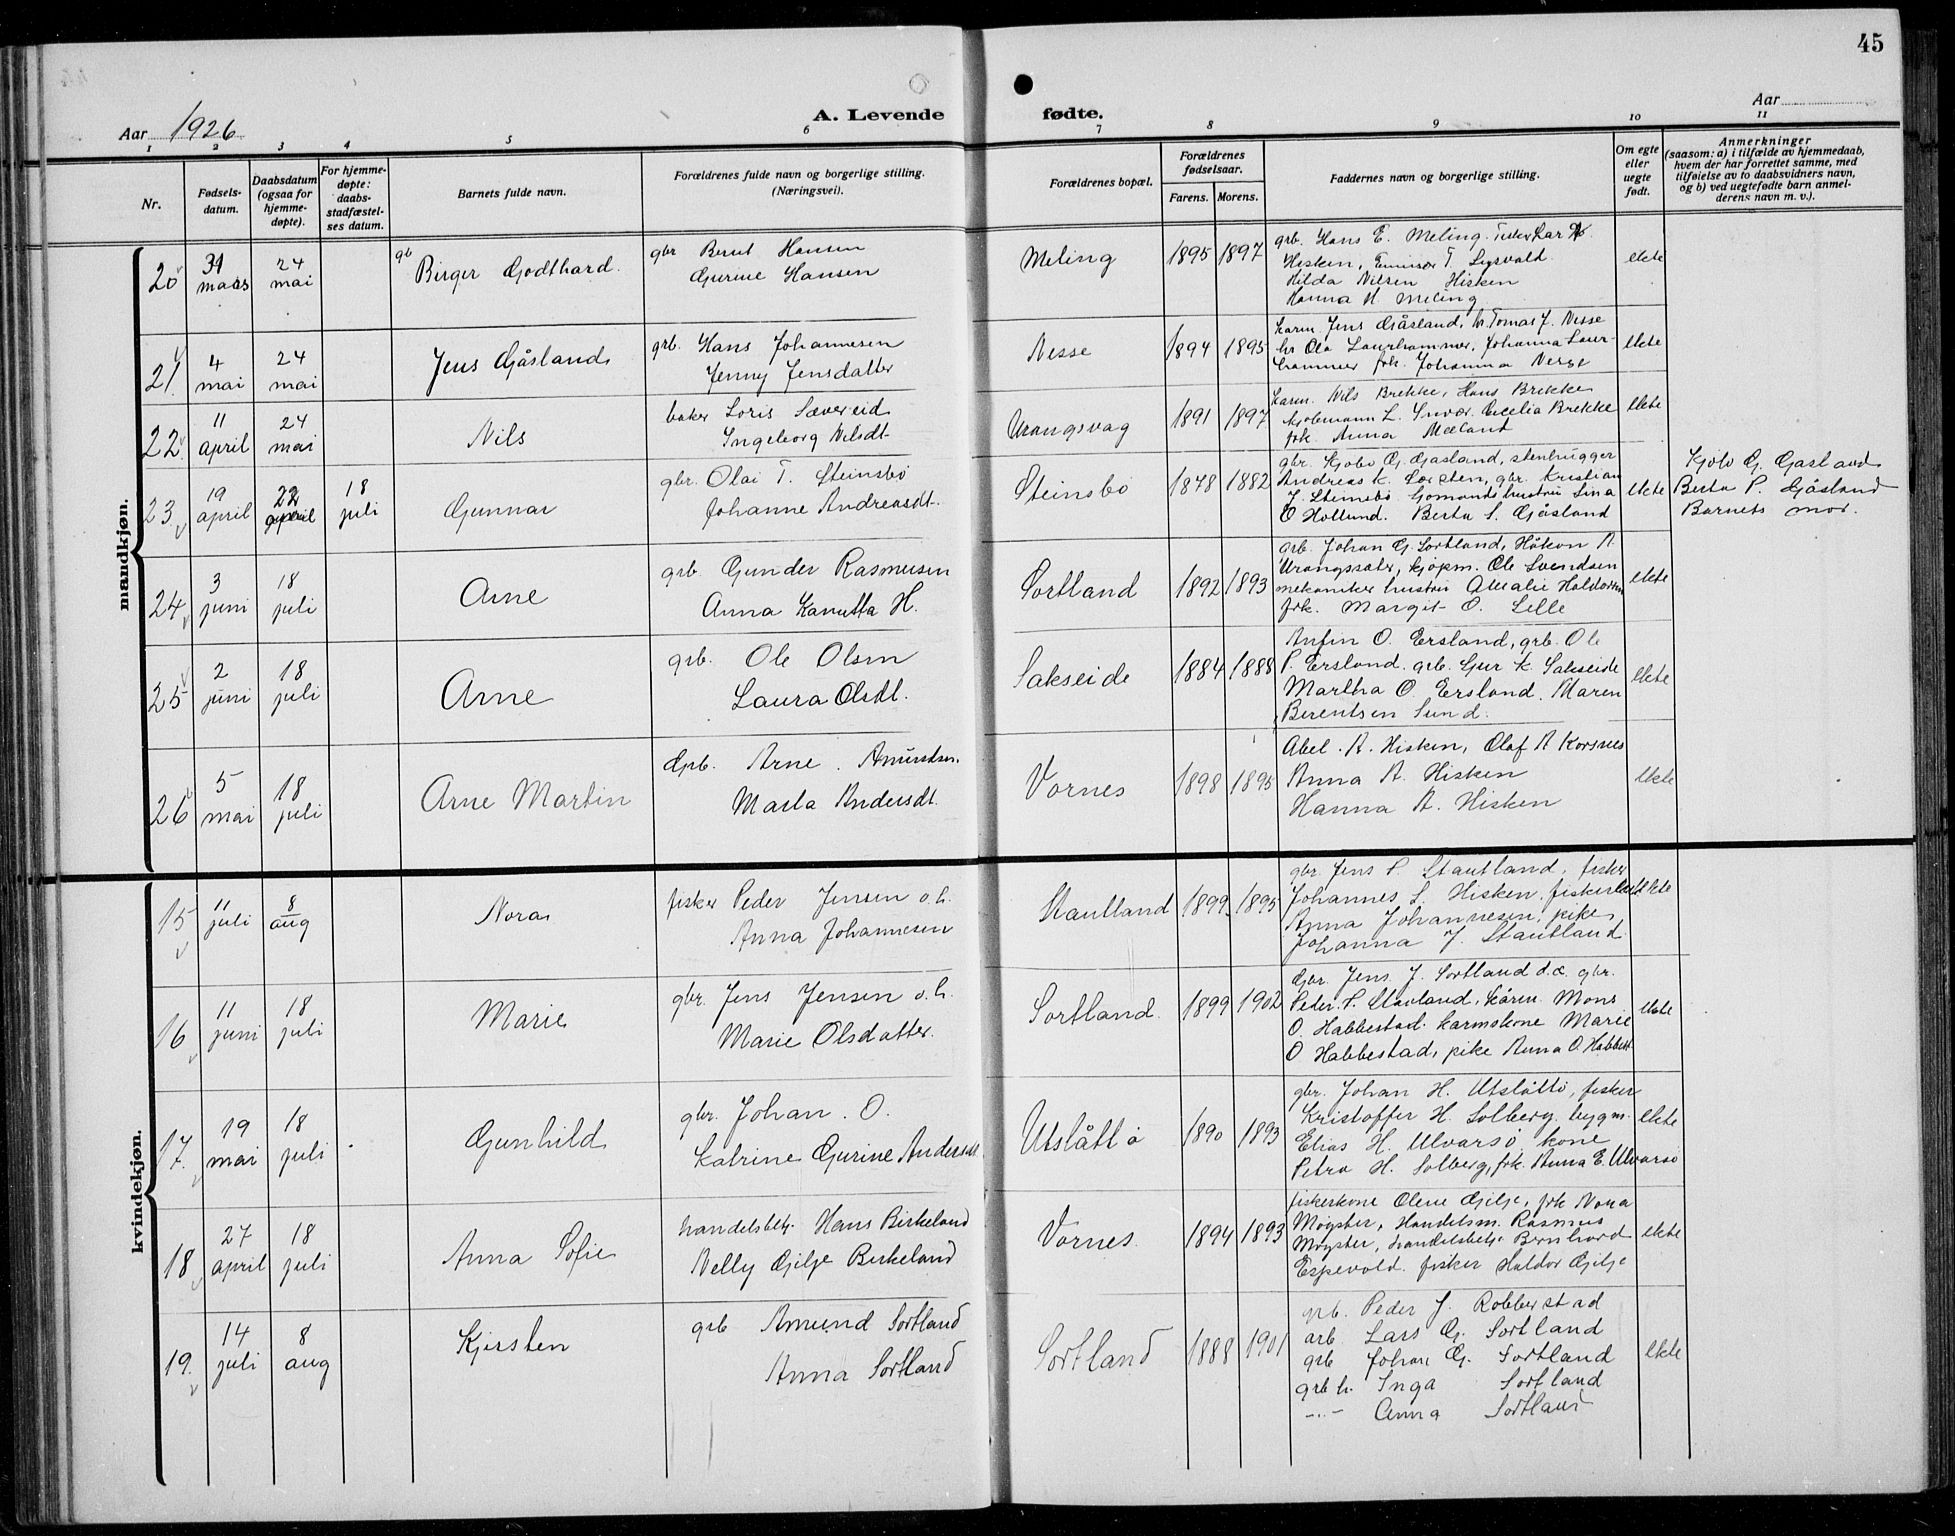 45
Aar 1926
A. Levende
fødte.
Aar
1 2 3 4 5 6 7 8 9 10 11
Nr.
Fødsels-
datum.
Daabsdatum
(ogsaa for
hjemme-
døpte).
For hjemme-
døpte:
daabs-
stadfæstel-
ses datum.
Barnets fulde navn.
Forældrenes fulde navn og borgerlige stilling.
(Næringsvei).
Forældrenes bopæl.
Forældrenes
fødselsaar.
Farens. Morens.
Faddernes navn og borgerlige stilling.
Om egte
eller
uegte
født.
Anmerkninger
(saasom: a) i tilfælde av hjemmedaab,
hvem der har forrettet samme, med
tilføielse av to daabsvidners navn,
og b) ved uegtefødte barn anmel-
derens navn m. v.).
mandkjøn.
20 31 mars 24 mai Birger Godthard. gbr Berut Hansen
Gurine Hansen
Meling 1895 1897 grb. Hans E. Meling.
Hisken,
Hilda Nilsen Hisken
Hanna H. Meling
ekte
21. 4 mai 24 mai Jens Gåsland grb. Hans Johannesen
Jenny Jensdatter
Nesse 1894 1895 karm. Jens Gåsland, Tomas J. Nesse
Ola Laurhammer, Johanna Laur-
hammer frk. Johanna
ekte
22. 11 april 24 mai Nils baker Loris Sævereid
Ingeborg Nilsdt.
Urangsvag 1891 1897 karm. Nils Brekke, Hans Brekke
Cecelia Brekke
frk. Anna Mæland
ekte
23 19 april 22 april 18 juli Gunnar gbr. Olai T. Steinsbø
Johanne Andreasdt.
Steinsbø 1878 1882 gbr. Kjobo G. Gasland, stenhugger
Andreas K. gbr. Kristian
J. Steinsbø hustru Lina
O Hollund. Berta S. Gåsland
ekte
G. Gasland
Berta P. Gåsland
Barnets mor.
24 3 juni 18 juli Arne grb. Gunder Rasmusen
Anna Kanutta H.
Sortland 1892 1893 grb. Johan G. Sortland, Håkon A.
kjøpm. Ole Svendsen
mekaniker hustru Amalie
frk. Margit O. Lille
ekte
25 2 juni 18 juli Arne grb. Ole Olsen
Laura Olsdt.
Sakseide 1884 1888 Anfin O. Ersland, grb. Ole
P. Ersland. grb. Gur K. Sakseide
Martha O. Ersland. Maren
Berentsen Sund.
ekte
26 5 mai 18 juli Arne Martin Grb. Arne Amundsen.
Marta Andersdt.
Vornes 1898 1895 Abel. A. Hisken, Olaf A Korsnes
Anna A. Hisken
Hanna A. Hisken
ekte
kvindekjøn.
15 11 juli 8 aug Nora fisker Peder Jensen o.h.
Anna Johannesen
Stautland 1899 1895 gbr. Jens P. Stautland, fisker
Johannes L. Hisken,
Anna Johannesen, pike
Johanna J. Stautland.
ekte
16 11 juni 18 juli Marie gbr. Jens Jensen o.h.
Marie Olsdatter.
Sortland. 1899 1902 Gbr. Jens J. Sortland d.æ. gbr.
Peder. P. Stavland, kårm. Mons
O. Habbestad. karmskone Marie
O Habbestad, pike Anna O. Habbest.
ekte
17. 19 mai 18 juli Gunhild gbr. Johan. O.
Katrine Gurine Andersdt.
Utslåttø 1890 1893 gbr. Johan H. Utslåttø, fisker
Kristoffer H. Solberg. bygm.
Elias H. Ulvarsø, kone
Petra H. Solberg, frk. Anna E. Ulvarsø
ekte
18 27 april 18 juli Anna Sofie handelsbetj. Hans Birkeland
Nelly Gilje Birkeland
Vornes. 1894 1893 fiskerkone Olene Gilje, frk Nora
Møgster, Handelsm. Rasmus
Møgster, handelsbetj. Bernhard
Espevold. fisker Haldor Gilje
ekte
19. 14 juli 8 aug Kjersten grb Amund Sortland
Anna Sortland
Sortland 1888 1901 grb. Peder J. Robberstad
arb. Lars G. Sortland
grb Johan G. Sortland
grb h. Inga Sortland
-..- Anna Sortland
ekte